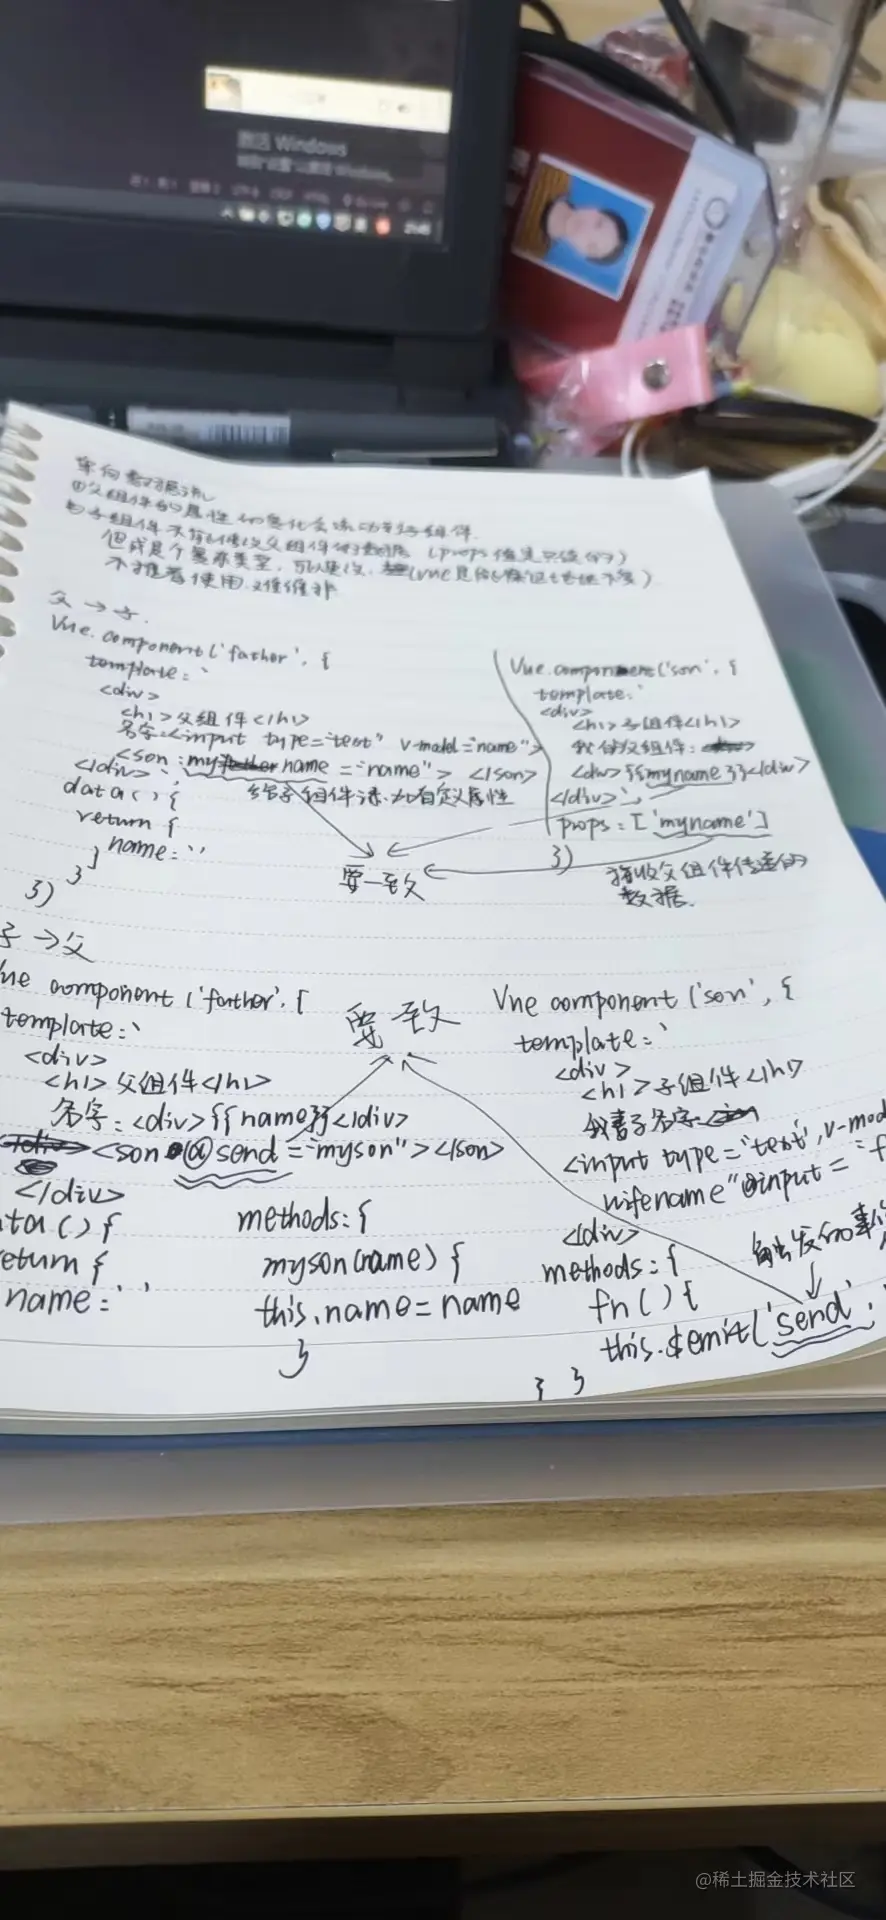 激活 Windows
单向数据流
①父组件的属性的变化会流动到子组件
②子组件不可以修改父组件的数据 (props值是只读的)
但或是个复杂类型，可以更改.
不推荐使用.难维护
父→子.
Vue.component('father', {
template:`
<div>
<h1>父组件</h1>
名字:<input type="text" v-model="name">
<son :myname="name"></son>
</div>`
给子组件添加自定义属性
data() {
return {
name:''
}
}
})
Vue.component('son', {
template:`
<div>
<h1>子组件</h1>
我的父组件:
<div>{{myname}}</div>
</div>`,
props:['myname']
})
接收父组件传递的
数据.
要一致
子→父
Vue component ('father', {
template:`
<div>
<h1>父组件</h1>
名字:<div>{{name}}</div>
<son @send="myson"></son>
</div>
ata() {
return {
name:''
methods:{
myson(name) {
this.name=name
}
要一致
Vue component ('son', {
template:`
<div>
<h1>子组件</h1>
我妻子名字:
<input type="text", v-mod
wifename" @input="f
</div>
触发的事件
methods:{
fn() {
this.$emit('send',
} }
@稀土掘金技术社区